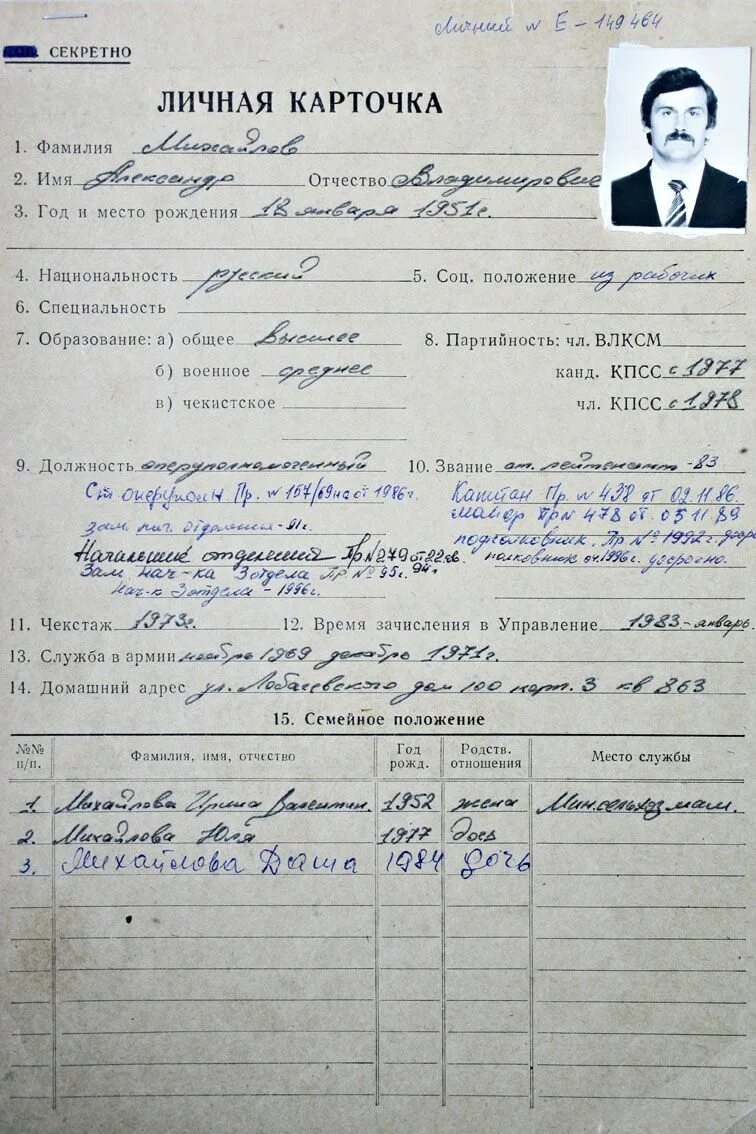 Личный № Е-149464
СЕКРЕТНО
ЛИЧНАЯ КАРТОЧКА
1. Фамилия Михайлов
2. Имя Александр Отчество Владимирович
3. Год и место рождения 18 января 1951г.
4. Национальность русский 5. Соц. положение из рабочих
6. Специальность
7. Образование: а) общее высшее 8. Партийность: чл. ВЛКСМ
б) военное среднее канд. КПСС с 1977
в) чекистское чл. КПСС с 1978
9. Должность оперуполномоченный 10. Звание ст. лейтенант -83
Ст оперуполн Пр. № 157/69 на ст 1986г. Капитан Пр. № 438 от 02.11.86.
зам. нач. отделения -91г. майор Пр № 478 от. 05 11 89
Начальник отделения Пр № 279 от 22. 94г. подполковник. Пр № 1992г.
Зам. нач-ка 3 отдела Пр № 95г. полковник 1996г. досрочно.
Нач-к 3 отдела - 1996г.
11. Чекстаж 1973г. 12. Время зачисления в Управление 1983-январь.
13. Служба в армии ноябрь 1969 декабрь 1971г.
14. Домашний адрес ул. Лобачевского дом 100 корп. 3 кв 863
15. Семейное положение
№№ п/п. Фамилия, имя, отчество Год рожд. Родств. отношения Место службы
1. Михайлова Ирина Валентин. 1952 жена Минсельхозмаш.
2. Михайлова Юля 1977 дочь
3. Михайлова Даша 1984 дочь